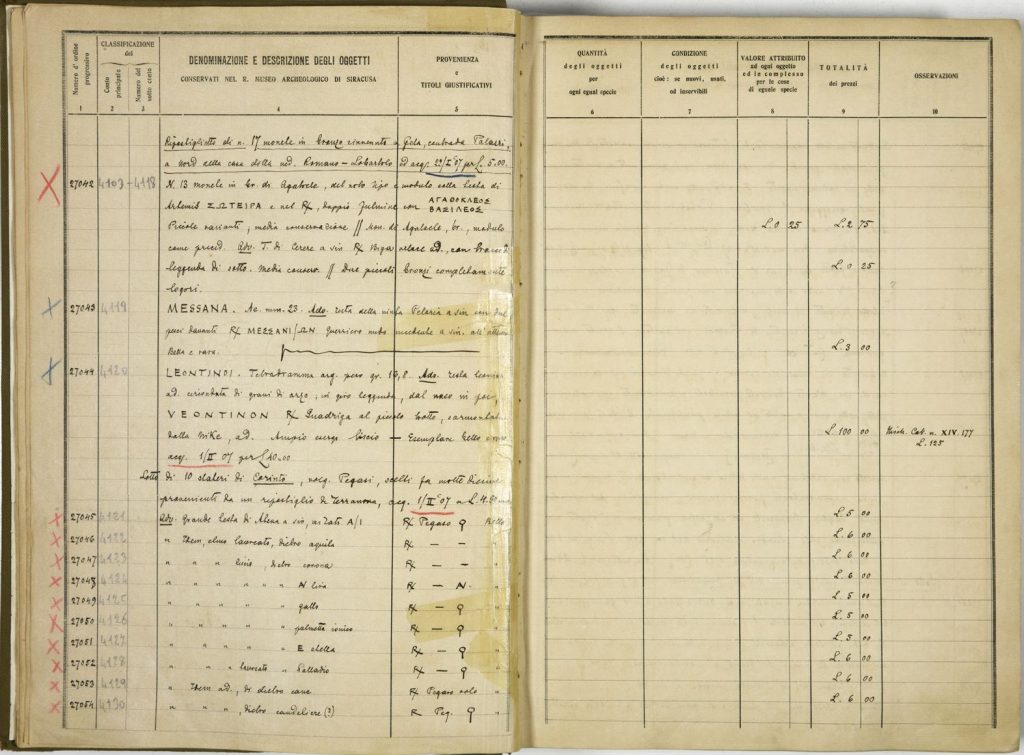 Numero d'ordine progressivo
CLASSIFICAZIONE
del
Conto principale
Numero del sotto conto
DENOMINAZIONE E DESCRIZIONE DEGLI OGGETTI
CONSERVATI NEL R. MUSEO ARCHEOLOGICO DI SIRACUSA
PROVENIENZA
e
TITOLI GIUSTIFICATIVI
1 2 3 4 5
Ripostiglietto di n. 17 monete in bronzo rinvenuto a Gela, contrada
a Nord della casa della ved. Romano – Lobartolo, ed acq. 22/I °07 per L. 5.00.
27042 4103-4118 N. 13 monete in br. di Agatocle, del noto tipo e modulo colla testa di
Artemis ΣΩΤΕΙΡΑ e nel R/, doppio fulmine con ΑΓΑΘΟΚΛΕΟΣ
ΒΑΣΙΛΕΟΣ
Piccole varianti, media conservazione // Mon. di Agatocle, br., modulo
come preced. Adv. T. di Cerere a sin R/ Biga veloce ad., con
leggenda di sotto. Media conserv. // Due piccoli bronzi completamente
logori.
27043 4119 MESSANA. Ae. mm. 23. Adv. testa della ninfa Peloria a sin con due
pesci davanti R/ ΜΕΣΣΑΝΙ/ΩΝ Guerriero nudo a sin.
Bella e rara.
27044 4120 LEONTINOI. Tetradramma arg. peso gr. 16,8. Adv. testa leonina
ad. circondata di grani di orzo; in giro leggenda, dal naso in poi,
VEONTINON R/ Quadriga al piccolo trotto, sormontata
dalla Nike, ad. Ampio liscio – Esemplare bello
acq. 1/II 07 per L. 40.00
Lotto di 10 stateri di Corinto, volg. Pegasi, scelti fra molte
provenienti da un ripostiglio di Terranova, acq. 1/II °07 a L.
27045 4121 Adv. Grande testa di Atena a sin, ai lati A/I R/ Pegaso Ϙ Bello
27046 4122 " Idem, elmo laureato, dietro aquila R/ – –
27047 4123 " " " liscio, dietro corona R/ – – "
27048 4124 " " " " " N lira R/ – N. "
27049 4125 " " " " " gallo R/ – Ϙ "
27050 4126 " " " " " palmetta ionica R/ – Ϙ "
27051 4127 " " " " " E stella R/ – Ϙ "
27052 4128 " " " laureato " Palladio R/ – Ϙ "
27053 4129 " Idem ad., di dietro cane R/ Pegaso solo "
27054 4130 " " ", dietro candeliere (?) R Peg. Ϙ "
QUANTITÀ
degli oggetti
per
ogni egual specie
CONDIZIONE
degli oggetti
cioè: se nuovi, usati,
od inservibili
VALORE ATTRIBUITO
ad ogni oggetto
ed in complesso
per le cose
di eguale specie
TOTALITÀ
dei prezzi
OSSERVAZIONI
6 7 8 9 10
L. 0 25 L. 2 75
L. 0 25
L. 3 00
L. 100 00 Cat. n. XIV. 177
L. 125
L. 5 00
L. 6 00
L. 6 00
L. 6 00
L. 5 00
L. 5 00
L. 3 00
L. 6 00
L. 6 00
L. 6 00